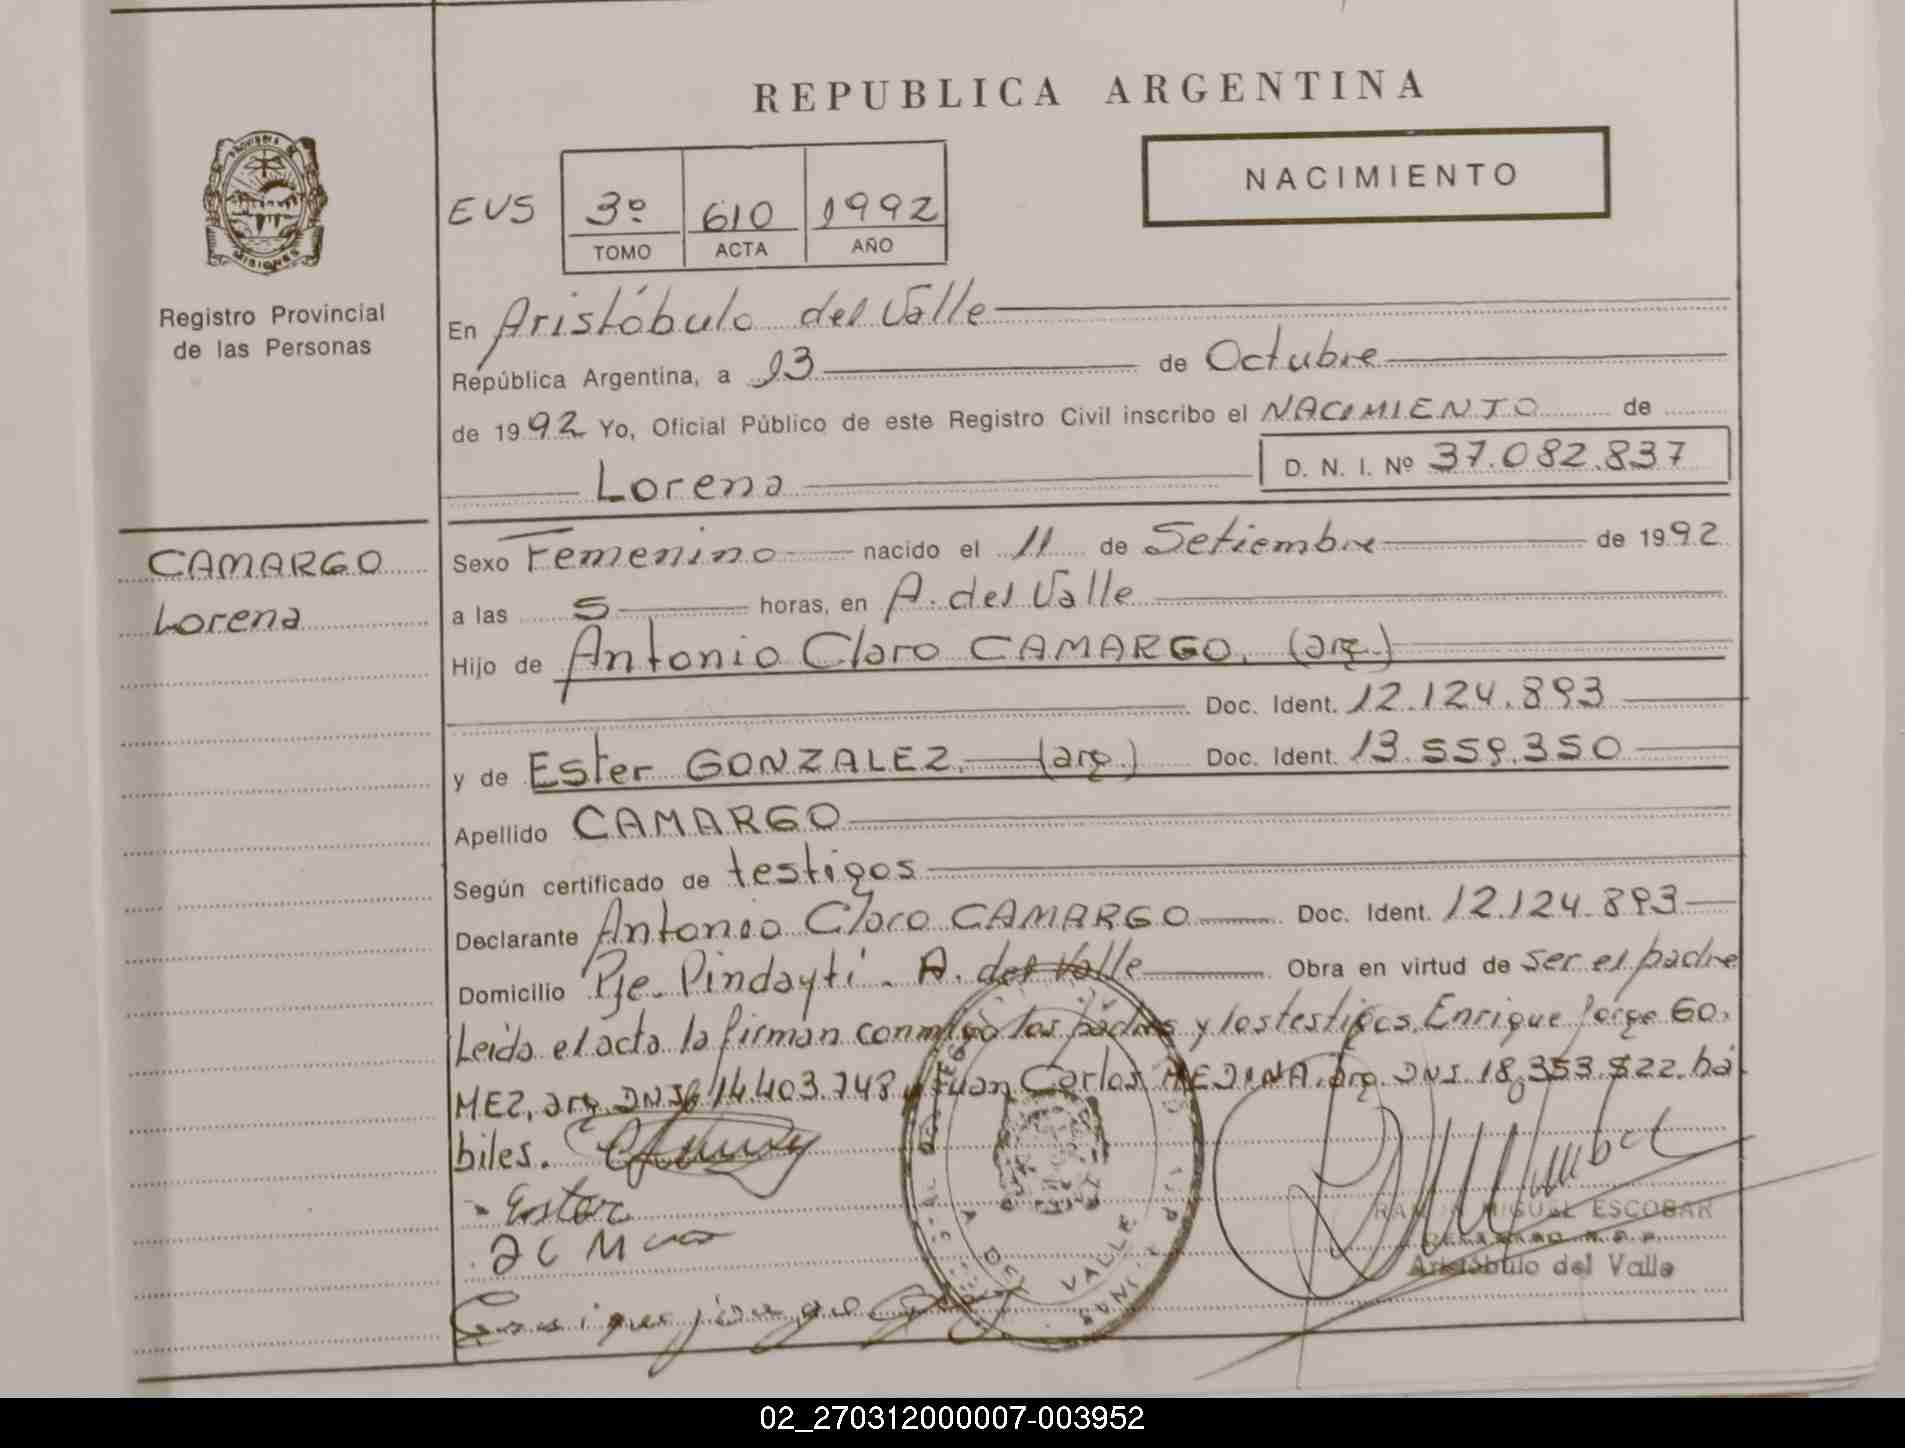 REPUBLICA ARGENTINA
NACIMIENTO
EUS 3º 610 1992
TOMO ACTA AÑO
MISIONES
Registro Provincial
de las Personas
En Aristóbulo del Valle
República Argentina, a 13 de Octubre
de 1992 Yo, Oficial Público de este Registro Civil inscribo el NACIMIENTO de
Lorena D. N. I. Nº 37.082.837
CAMARGO
Lorena
Sexo Femenino nacido el 11 de Setiembre de 1992
a las 5 horas, en A. del Valle
Hijo de Antonio Claro CAMARGO. (arg.)
Doc. Ident. 12.124.893
y de Ester GONZALEZ. (arg.) Doc. Ident. 13.559.350
Apellido CAMARGO
Según certificado de testigos
Declarante Antonio Claro CAMARGO Doc. Ident. 12.124.893
Domicilio Pje. Pindaytí - A. del Valle Obra en virtud de ser el padre
Leída el acta la firman conmigo los padres y los testigos Enrique Jorge GO-
MEZ, arg. DNI 14.403.748 y Juan Carlos MEDINA. arg. DNI. 18.353.522. há
biles.
Ester
RAMON MIGUEL ESCOBAR
Aristóbulo del Valle
VALLE
02_270312000007-003952